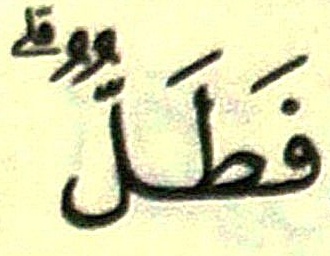 فَطَلٌّ ۗ